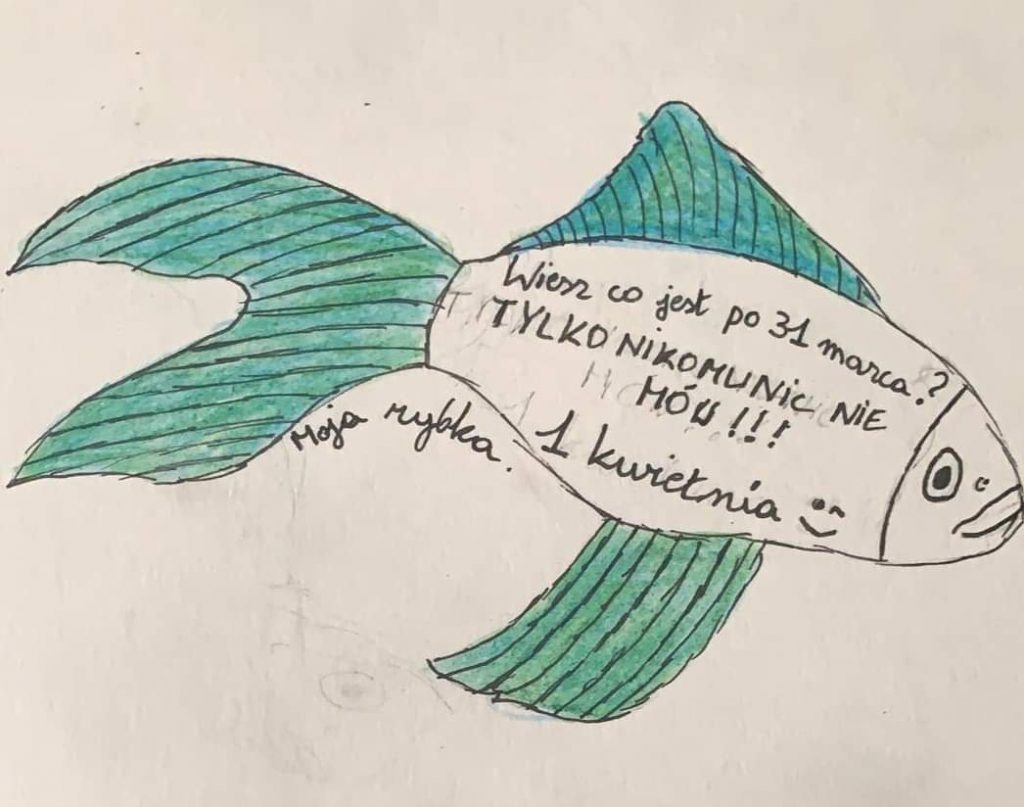 Wiesz co jest po 31 marca?
TYLKO NIKOMU NIC NIE
MÓW!!!
1 kwietnia
Moja rybka.